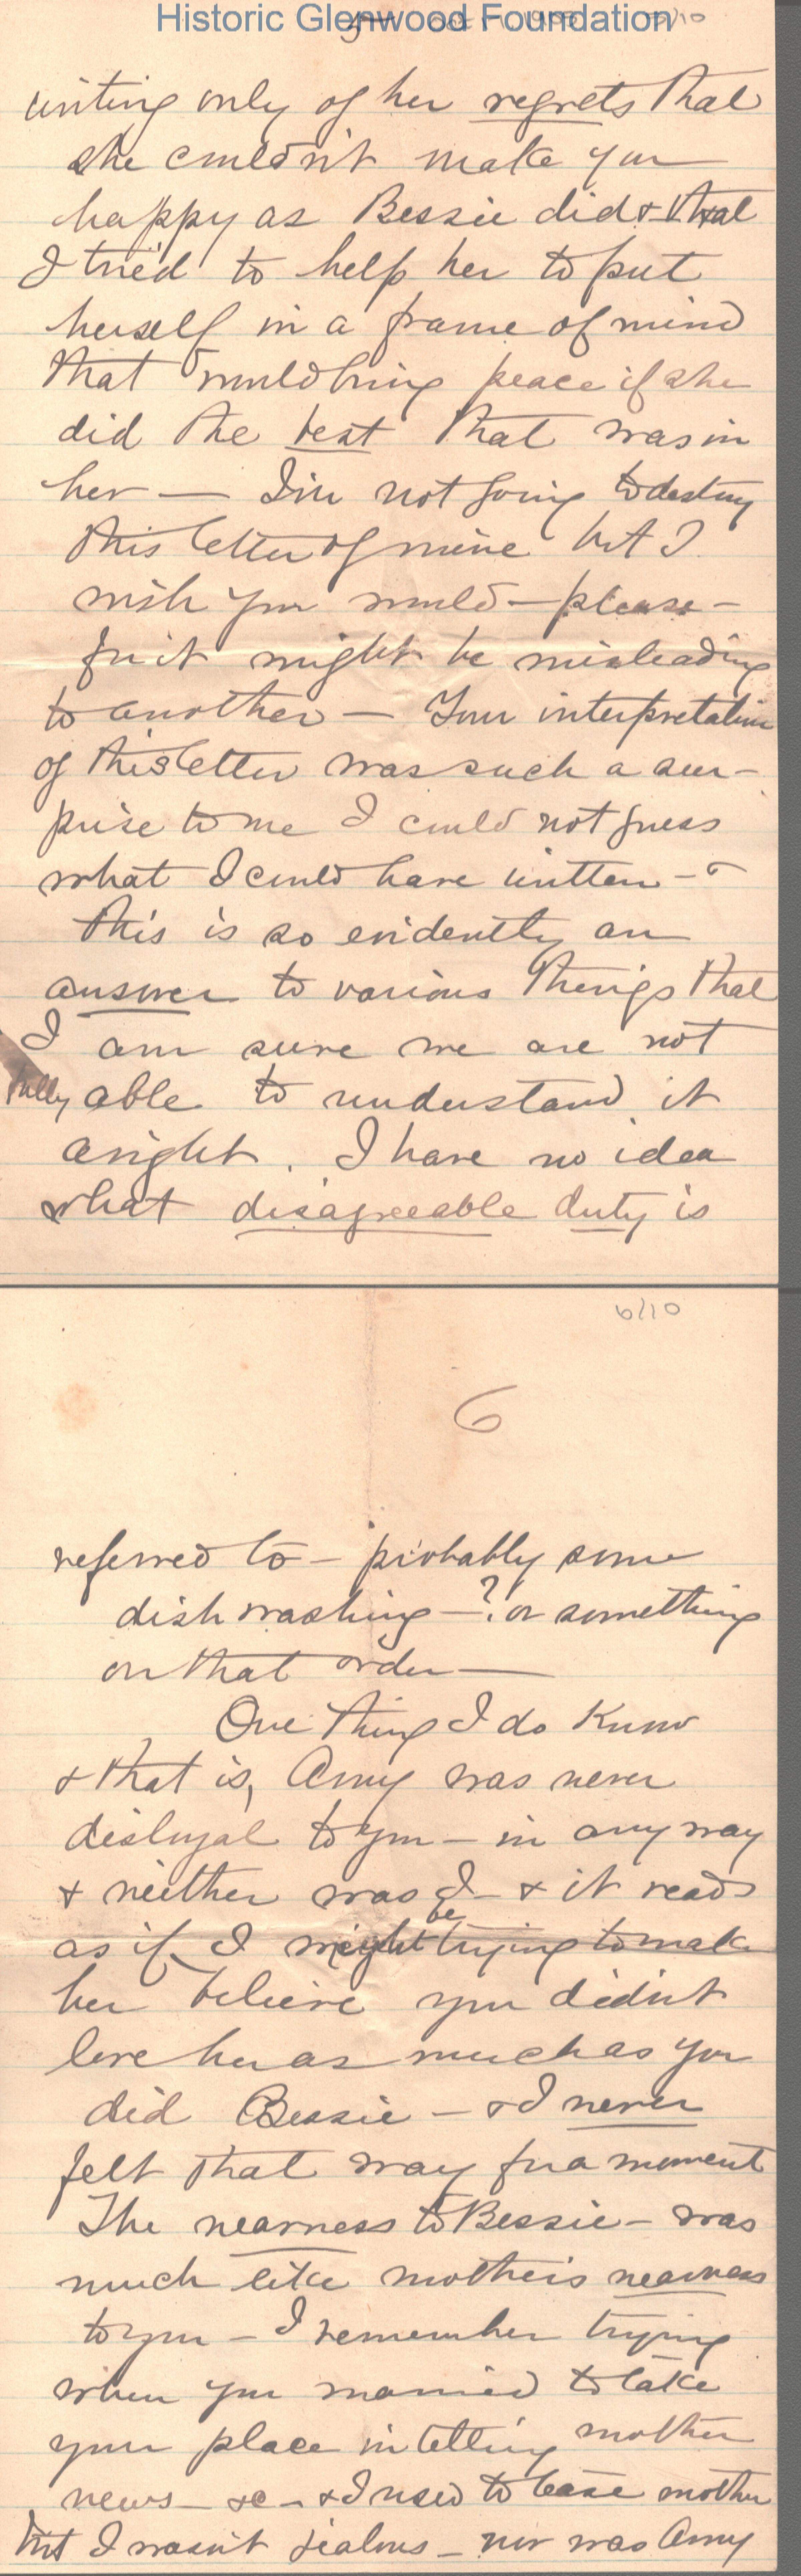 Historic Glenwood Foundation
5/10
writing only of her regrets that
she couldn't make you
happy as Bessie did & that
I tried to help her to put
herself in a frame of mind
that would bring peace if she
did the best that was in
her — I'm not going to destroy
this letter of mine but I
wish you would — please —
for it might be misleading
to another — Your interpretation
of this letter was such a sur-
prise to me I could not guess
what I could have written — &
this is so evidently an
answer to various things that
I am sure we are not
fully able to understand it
aright. I have no idea
what disagreeable duty is
6/10
6
referred to — probably some
dish washing — ? or something
on that order —
One thing I do know
& that is, Amy was never
disloyal to you — in any way
& neither was I — & it reads
as if I might be trying to make
her believe you didn't
love her as much as you
did Bessie — & I never
felt that way for a moment
The nearness to Bessie — was
much like mother's nearness
to you — I remember trying
when you married to take
your place in telling mother
news — &c — & I used to tease mother
but I wasn't jealous — nor was Amy